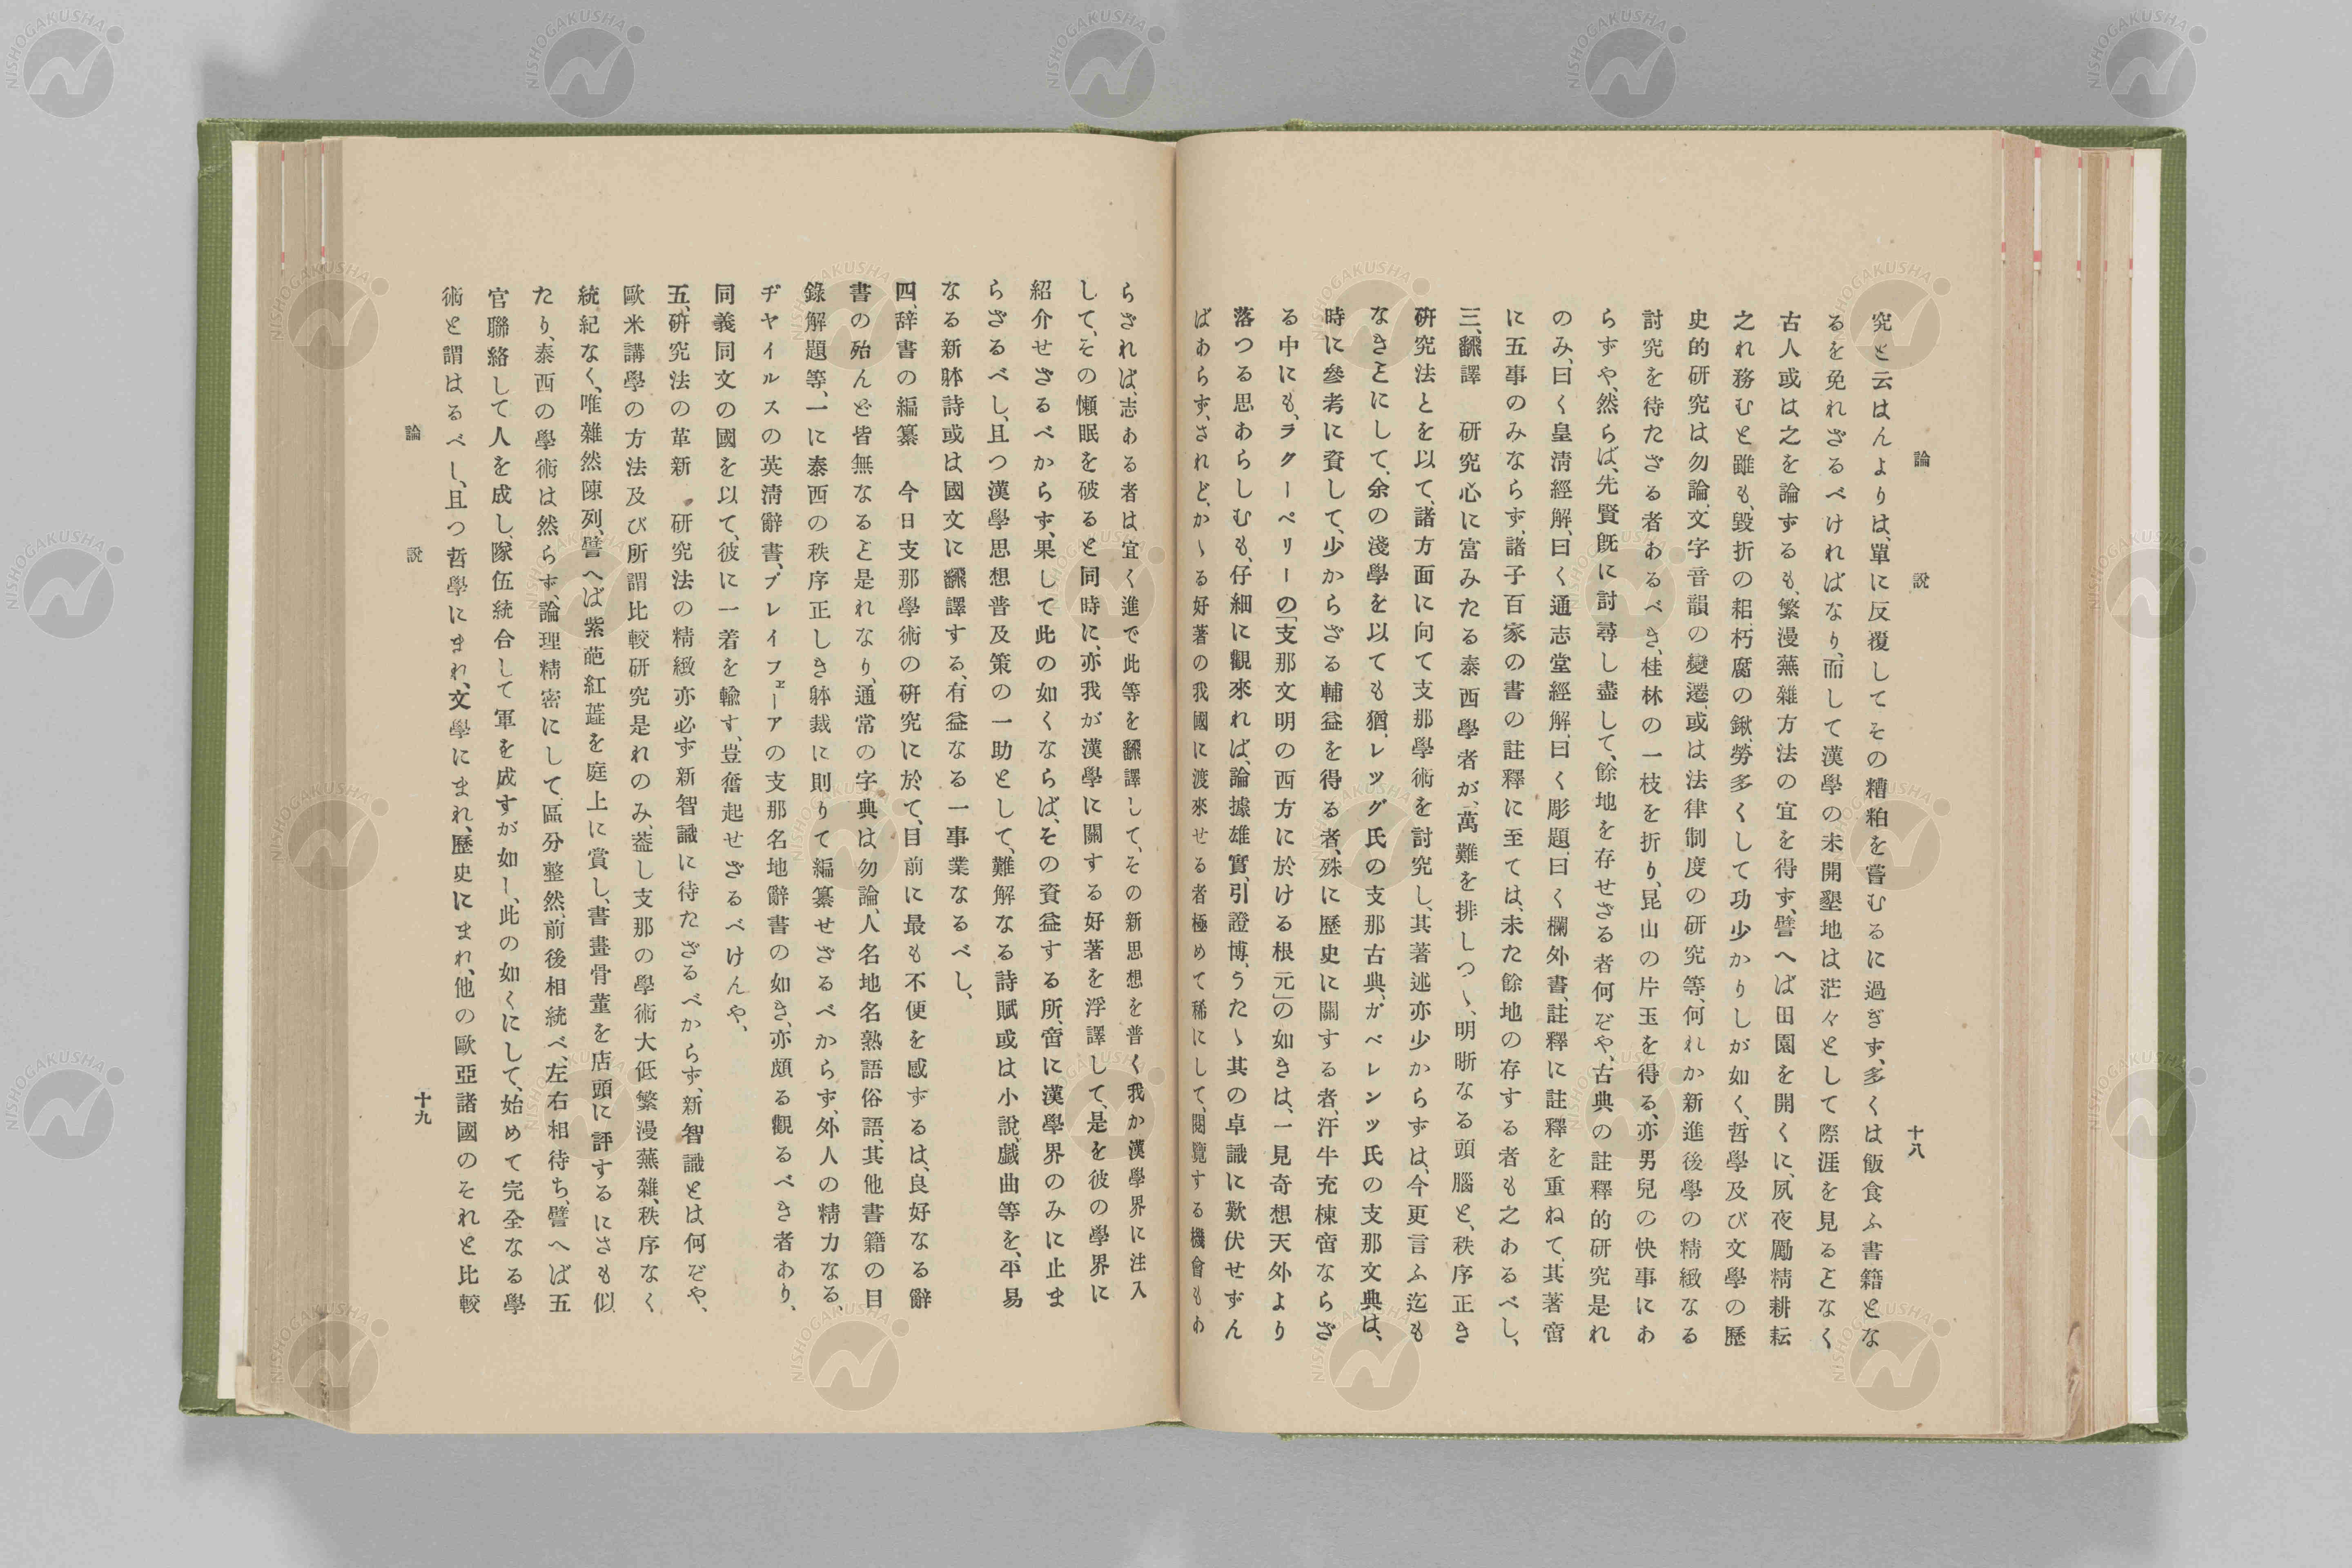 論說
十八
究と云はんよりは、單に反覆してその糟粕を嘗むるに過ぎず、多くは飯食ふ書籍とな
るを免れざるべければなり、而して漢學の未開墾地は茫々として際涯を見るとなく
古人或は之を論ずるも、繁漫蕪雜方法の宜を得ず、譬へば田園を開くに、夙夜勵精耕耘
之れ務むと雖も、毀折の耜、朽腐の鍬、勞多くして功少かりしが如く、哲學及び文學の歷
史的硏究は勿論、文字音韻の變遷、或は法律制度の硏究等、何れか新進後學の精緻なる
討究を待たざる者あるべき、桂林の一枝を折り、昆山の片玉を得る、亦男兒の快事にあ
らずや、然らば、先賢旣に討尋し盡して、餘地を存せざる者何ぞや、古典の註釋的硏究是れ
のみ、曰く皇淸經解、曰く通志堂經解、曰く彫題、曰く欄外書、註釋に註釋を重ねて、其著啻
に五事のみならず、諸子百家の書の註釋に至ては、未た餘地の存する者も之あるべし、
三、飜譯　硏究心に富みたる泰西學者が、萬難を排しつゝ、明晣なる頭腦と、秩序正き
硏究法とを以て、諸方面に向て支那學術を討究し、其著述亦少からずは、今更言ふ迄も
なきとにして、余の淺學を以ても猶、レッグ氏の支那古典、ガベレンツ氏の支那文典は、
時に參考に資して、少からざる輔益を得る者、殊に歷史に關する者、汗牛充棟啻ならざ
る中にも、ラクーペリーの「支那文明の西方に於ける根元」の如きは、一見奇想天外より
落つる思あらしむも、仔細に觀來れば、論據雄實、引證博、うたゝ其の卓識に歎伏せずん
ばあらず、されど、かゝる好著の我國に渡來せる者極めて稀にして、閱覽する機會もあ
らざれば、志ある者は宜く進で此等を飜譯して、その新思想を普く我か漢學界に注入
して、その懶眠を破ると同時に、亦我が漢學に關する好著を浮譯して、是を彼の學界に
紹介せざるべからず、果して此の如くならば、その資益する所、啻に漢學界のみに止ま
らざるべし、且つ漢學思想普及策の一助として、難解なる詩賦或は小說、戲曲等を、平易
なる新躰詩或は國文に飜譯する、有益なる一事業なるべし、
四、辞書の編纂　今日支那學術の硏究に於て、目前に最も不便を感ずるは、良好なる辭
書の殆んど皆無なると是れなり、通常の字典は勿論、人名地名熟語俗語、其他書籍の目
錄解題等、一に泰西の秩序正しき躰裁に則りて編纂せざるべからず、外人の精力なる、
ヂヤイルスの英淸辭書、ブレイフェーアの支那名地辭書の如き、亦頗る觀るべき者あり、
同義同文の國を以て、彼に一着を輸す、豈奮起せざるべけんや、
五、硏究法の革新　硏究法の精緻亦必ず新智識に待たざるべからず、新智識とは何ぞや、
歐米講學の方法及び所謂比較硏究是れのみ、葢し支那の學術大低繁漫蕪雜、秩序なく
統紀なく、唯雜然陳列、譬へば紫葩紅蘂を庭上に賞し、書畫骨董を店頭に評するにさも似
たり、泰西の學術は然らず、論理精密にして、區分整然、前後相統べ、左右相待ち、譬へば五
官聯絡して人を成し、隊伍統合して軍を成すが如し、此の如くにして、始めて完全なる學
術と謂はるべし、且つ哲學にまれ、文學にまれ、歷史にまれ、他の歐亞諸國のそれと比較
論說
十九